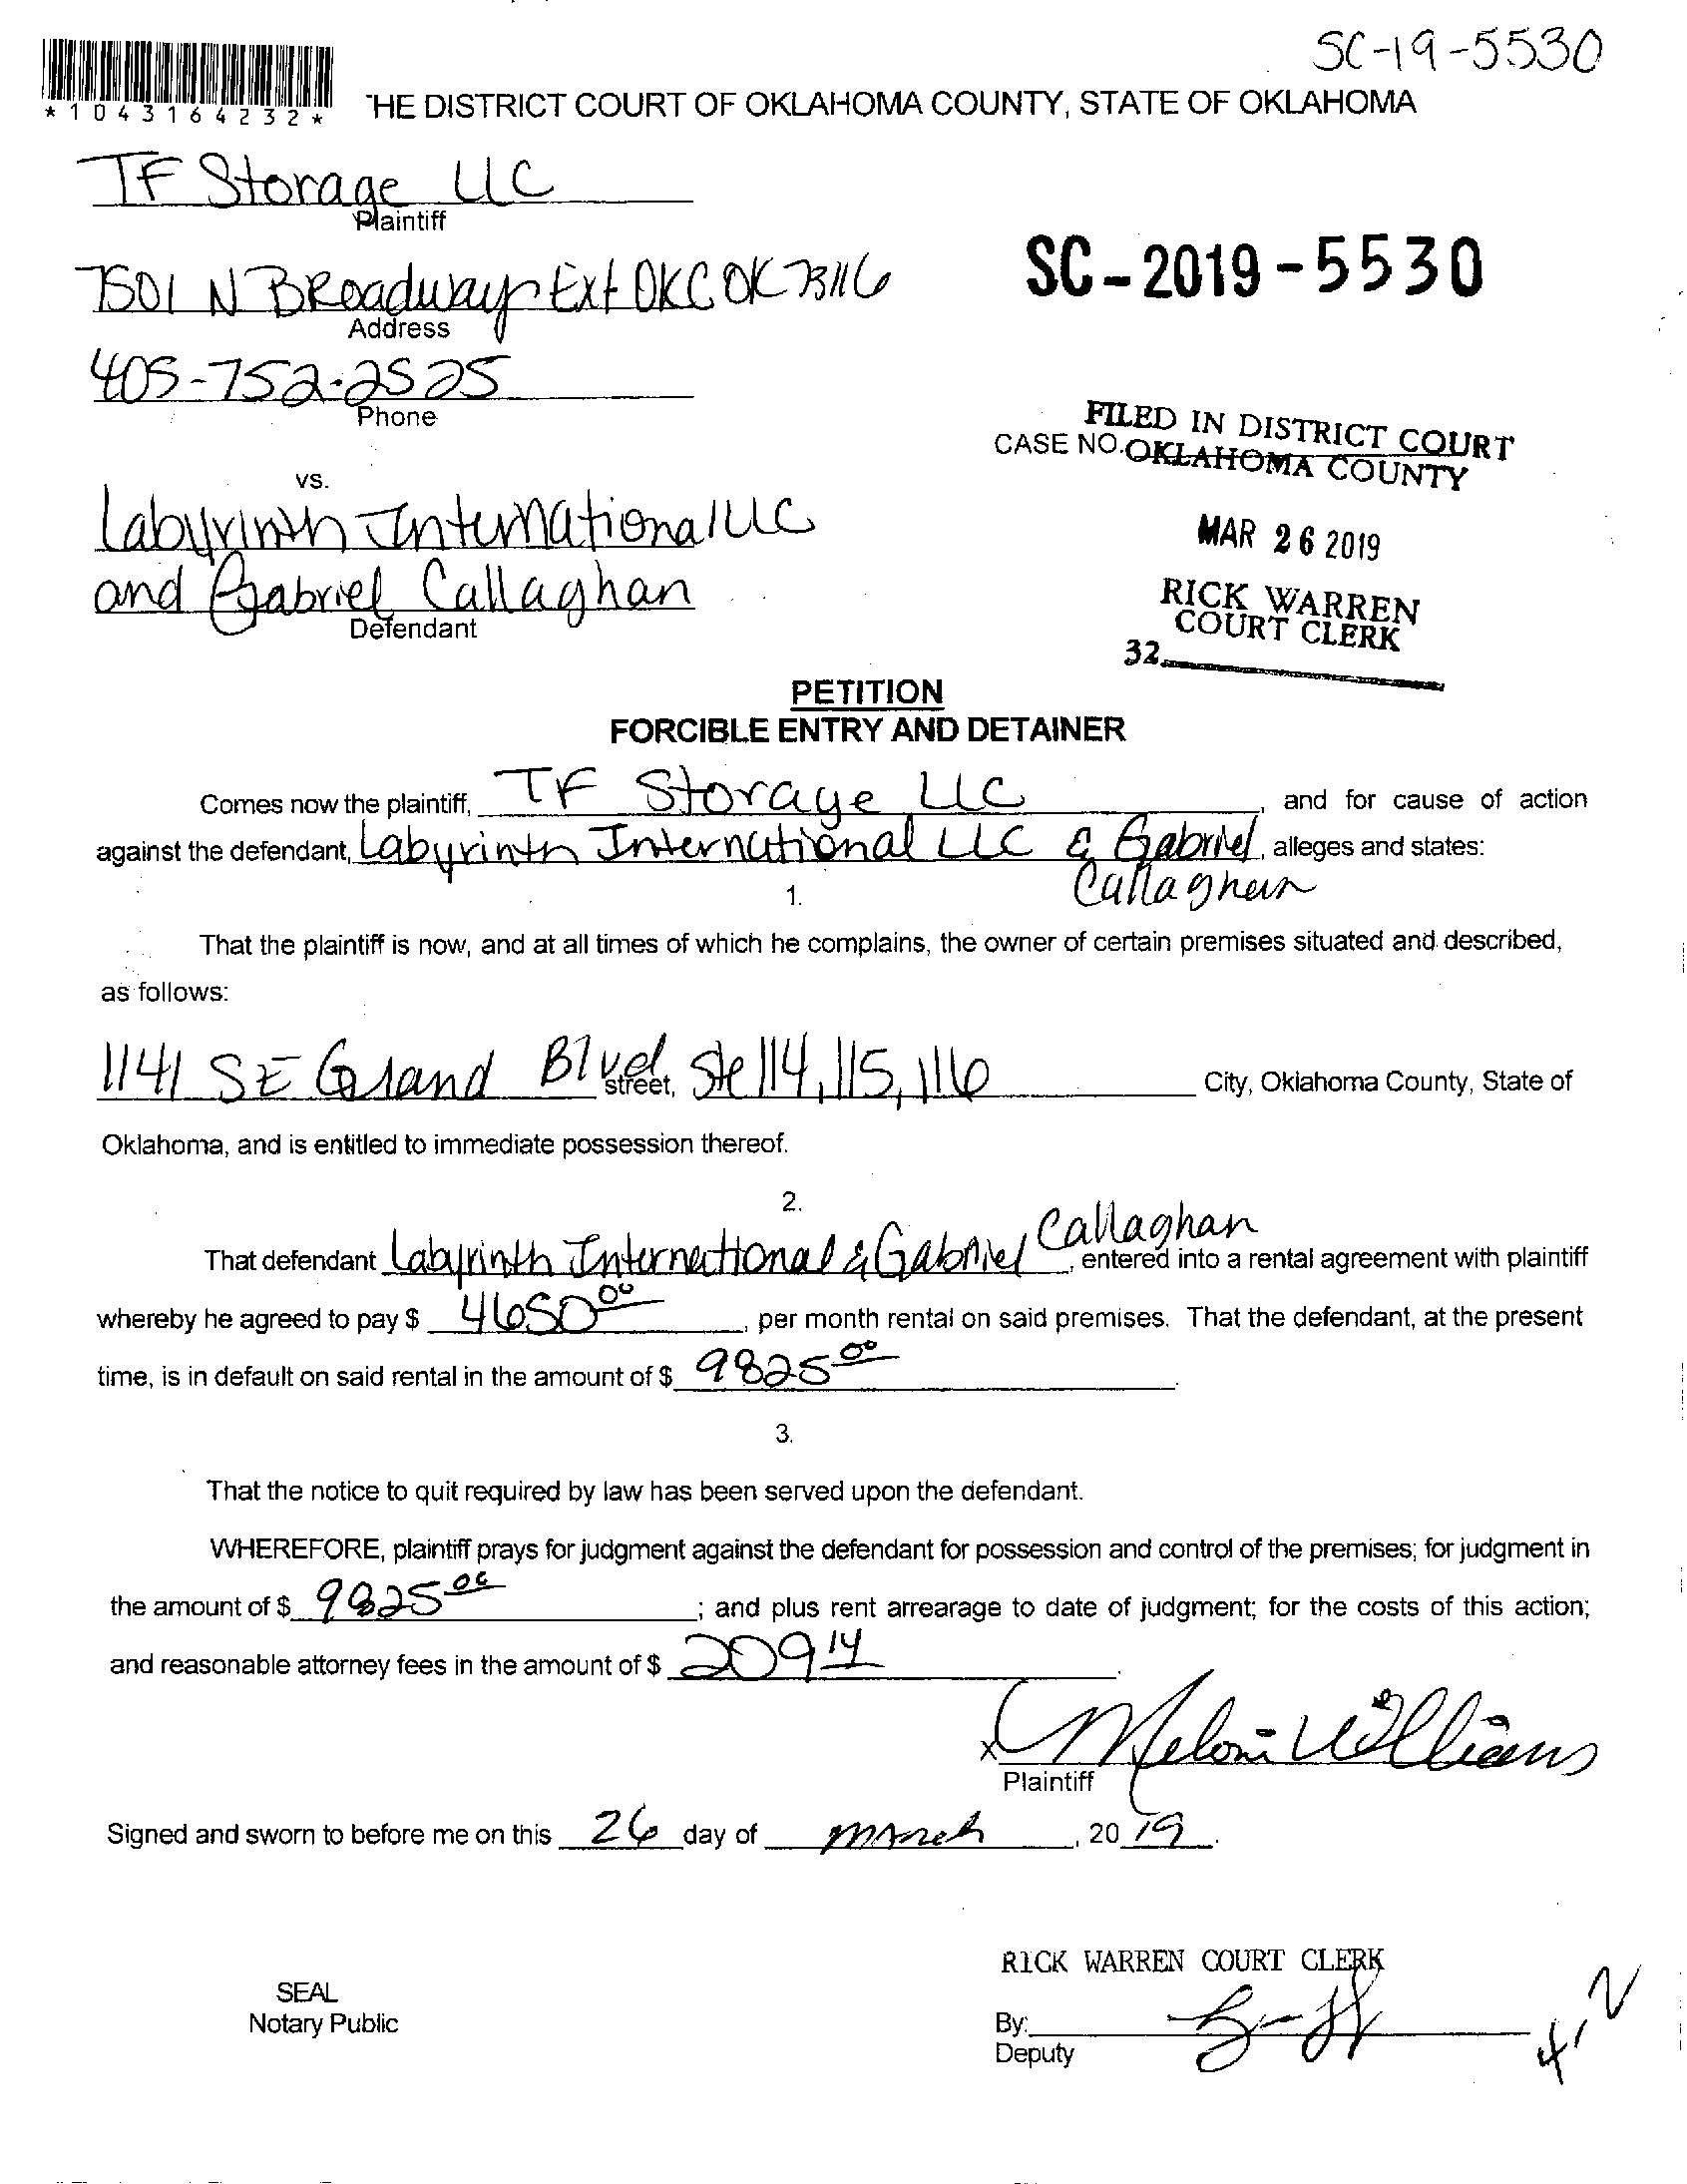 SC-19-5530
*1043164232*
THE DISTRICT COURT OF OKLAHOMA COUNTY, STATE OF OKLAHOMA
TF Storage LLC
Plaintiff
7501 N BRoadway Ext OKC OK 73116
Address
SC-2019-5530
405-752-2525
Phone
FILED IN DISTRICT COURT
CASE NO. OKLAHOMA COUNTY
vs.
Labyrinth International LLC
MAR 26 2019
and Gabriel Callaghan
Defendant
RICK WARREN
COURT CLERK
32
PETITION
FORCIBLE ENTRY AND DETAINER
Comes now the plaintiff, TF Storage LLC, and for cause of action
against the defendant, Labyrinth International LLC & Gabriel, alleges and states:
Callaghan
1.
That the plaintiff is now, and at all times of which he complains, the owner of certain premises situated and described,
as follows:
1141 SE Grand Blvd street, Ste 114, 115, 116 City, Oklahoma County, State of
Oklahoma, and is entitled to immediate possession thereof.
2.
That defendant Labyrinth International & Gabriel Callaghan, entered into a rental agreement with plaintiff
whereby he agreed to pay $ 4650 00, per month rental on said premises. That the defendant, at the present
time, is in default on said rental in the amount of $ 9825 00.
3.
That the notice to quit required by law has been served upon the defendant.
WHEREFORE, plaintiff prays for judgment against the defendant for possession and control of the premises; for judgment in
the amount of $ 9825 00; and plus rent arrearage to date of judgment; for the costs of this action;
and reasonable attorney fees in the amount of $ 209 14.
x Meloni Williams
Plaintiff
Signed and sworn to before me on this 26 day of March, 2019.
RICK WARREN COURT CLERK
SEAL
Notary Public
By:
Deputy